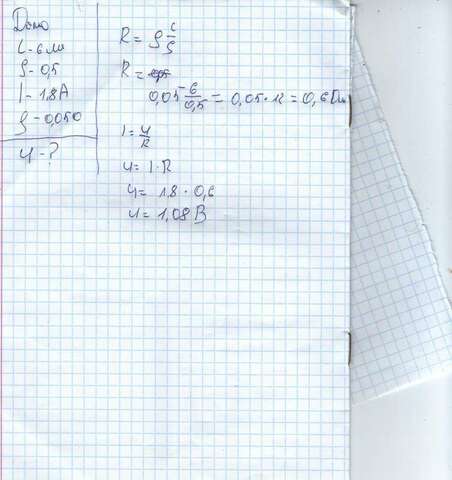 Дано
l - 6 м
S - 0,5
I - 1,8 А
ρ - 0,050
U - ?
R = ρ l/S
R =
0,05 6/0,5 = 0,05 · 12 = 0,6 Ом
I = U/R
U = I · R
U = 1,8 · 0,6
U = 1,08 В